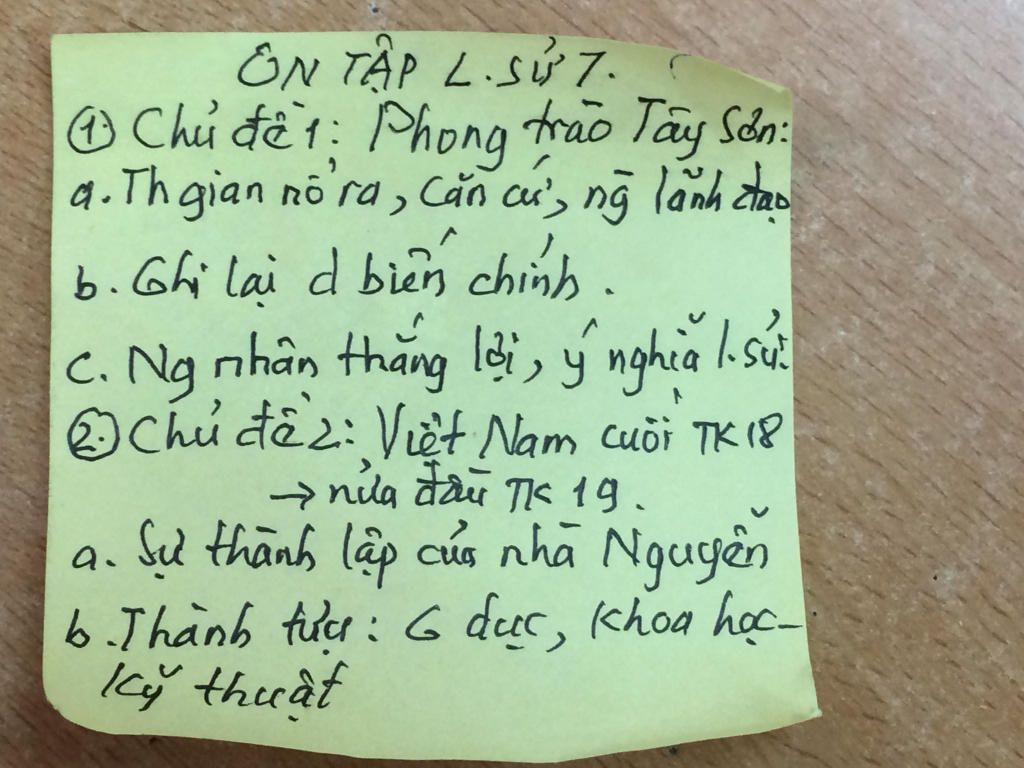 ÔN TẬP L. SỬ 7.
① Chủ đề 1: Phong trào Tây Sơn:
a. Th gian nổ ra, căn cứ, ng lãnh đạo
b. Ghi lại d biến chính.
c. Ng nhân thắng lợi, ý nghĩa l. sử.
② Chủ đề 2: Việt Nam cuối TK 18
→ nửa đầu TK 19.
a. Sự thành lập của nhà Nguyễn
b. Thành tựu: G dục, khoa học -
kỹ thuật